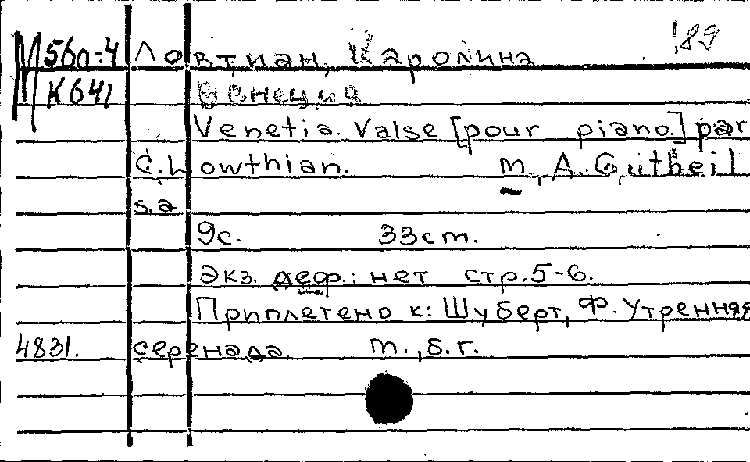 М560-4 Ловтиан, Каролина '89
К641 Венеция
Venetia. Valse [pour piano] par
C. Lowthian. m., A. Gutheil
s.a
9с. 33cm.
Экз. деф.: нет стр.5-6.
Приплетено к: Шуберт, Ф. Утренняя
4831. серенада. m., б.г.